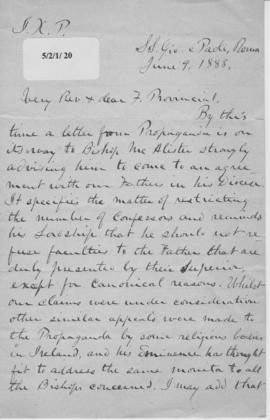 I.X.P.
5/2/1/20
SS. Gio. e Paolo, Roma
June 9. 1888.
Very Rev & dear F. Provincial,
By this
time a letter from Propaganda is on
its way to Bishop McAlister strongly
advising him to come to an agree-
ment with our Fathers in his Diocese.
It specifies the matter of restricting
the number of Confessors and reminds
his Lordship that he should not re-
fuse faculties to the Fathers that are
duly presented by their Superior,
except for Canonical reasons. Whilst
our claims were under consideration
other similar appeals were made to
the Propaganda by some religious bodies
in Ireland, and his Eminence has thought
fit to address the same monita to all
the Bishops concerned. I may add that